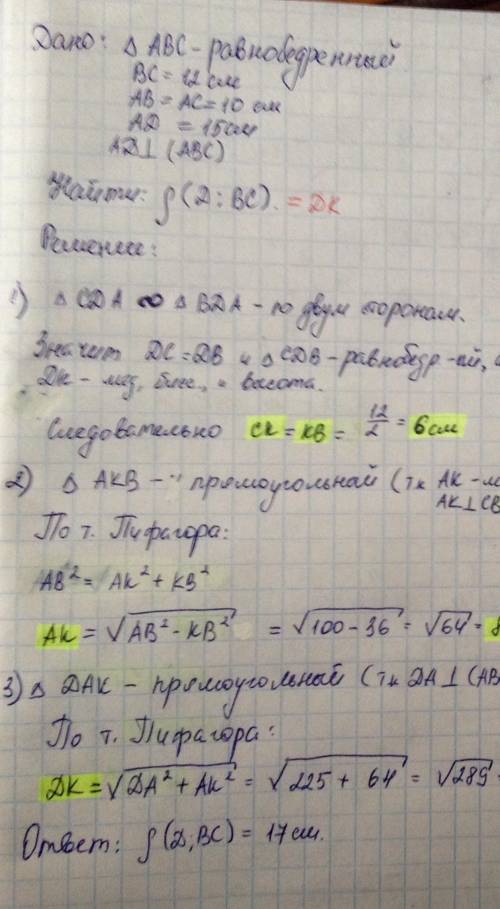 Дано: △ ABC - равнобедренный
BC = 12 см
AB = AC = 10 см
AD = 15 см
AD ⊥ (ABC)
Найти: ρ(D; BC). = DK
Решение:
1) △ CDA ∞ △ BDA - по двум сторонам.
Значит DC = DB и △ CDB - равнобедр-ий,
DK - мед, бис., и высота.
Следовательно CK = KB = 12/2 = 6 см
2) △ AKB - прямоугольный (тк AK -
AK ⊥ CB
По т. Пифагора:
AB² = AK² + KB²
AK = √AB² - KB² = √100 - 36 = √64 = 8
3) △ DAK - прямоугольный (тк DA ⊥ (AB
По т. Пифагора:
DK = √DA² + AK² = √225 + 64 = √289
Ответ: ρ(D; BC) = 17 см.